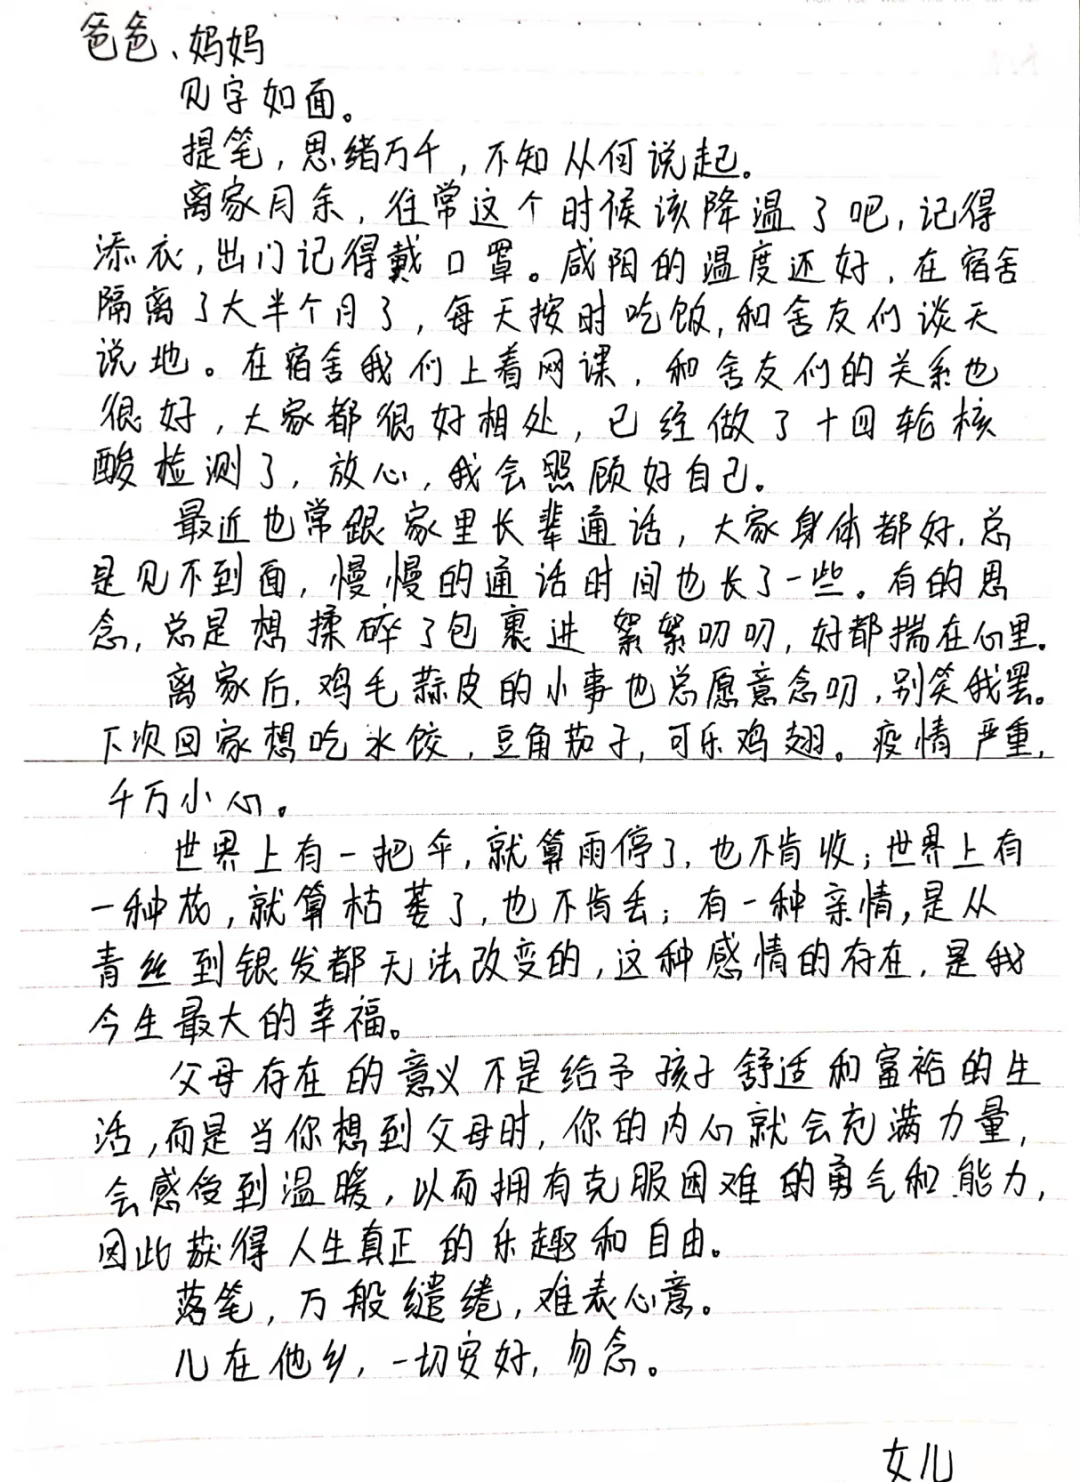 爸爸、妈妈
见字如面。
提笔，思绪万千，不知从何说起。
离家月余，往常这个时候该降温了吧，记得
添衣，出门记得戴口罩。咸阳的温度还好，在宿舍
隔离了大半个月了，每天按时吃饭，和舍友们谈天
说地。在宿舍我们上着网课，和舍友们的关系也
很好，大家都很好相处，已经做了十回轮核
酸检测了，放心，我会照顾好自己。
最近也常跟家里长辈通话，大家身体都好，总
是见不到面，慢慢的通话时间也长了一些。有的思
念，总是想揉碎了包裹进絮絮叨叨，好都揣在心里。
离家后，鸡毛蒜皮的小事也总愿意念叨，别笑我罢。
下次回家想吃水饺，豆角茄子，可乐鸡翅。疫情严重，
千万小心。
世界上有一把伞，就算雨停了，也不肯收；世界上有
一种花，就算枯萎了，也不肯丢；有一种亲情，是从
青丝到银发都无法改变的，这种感情的存在，是我
今生最大的幸福。
父母存在的意义不是给予孩子舒适和富裕的生
活，而是当你想到父母时，你的内心就会充满力量，
会感受到温暖，以而拥有克服困难的勇气和能力，
因此获得人生真正的乐趣和自由。
落笔，万般缱绻，难表心意。
儿在他乡，一切安好，勿念。
女儿